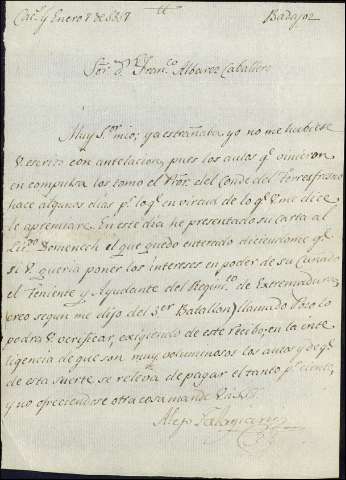 Cac.s y Enero 8 de 1817
tt
Badajoz
Sor. D.n Fran.co Albarez Caballero
Muy S.or mio; ya estrañaba yo no me hubiese
V escrito con antelacion, pues los autos q.e vinieron
en compulsa los tomo el Pror. del Conde del Torrefresno
hace algunos dias p.r lo q.e en virtud de lo q.e V me dice
le apremiare. En este dia he presentado su carta al
Lic.do Domenech el que quedó enterado diciendome q.e
si V queria poner los intereses en poder de su Cuñado
el Teniente y Ayudante del Regim.to de Extremadura
(creo segun me dijo del 3er Batallon) llamado Pozo lo
podrá V verificar, exigiendo de este recibo; en la inte
ligencia de que son muy voluminosos los autos y de q.e
de esta suerte se releva de pagar el tanto p.r ciento,
y no ofreciendose otra cosa mande V a S.S.
Alejo